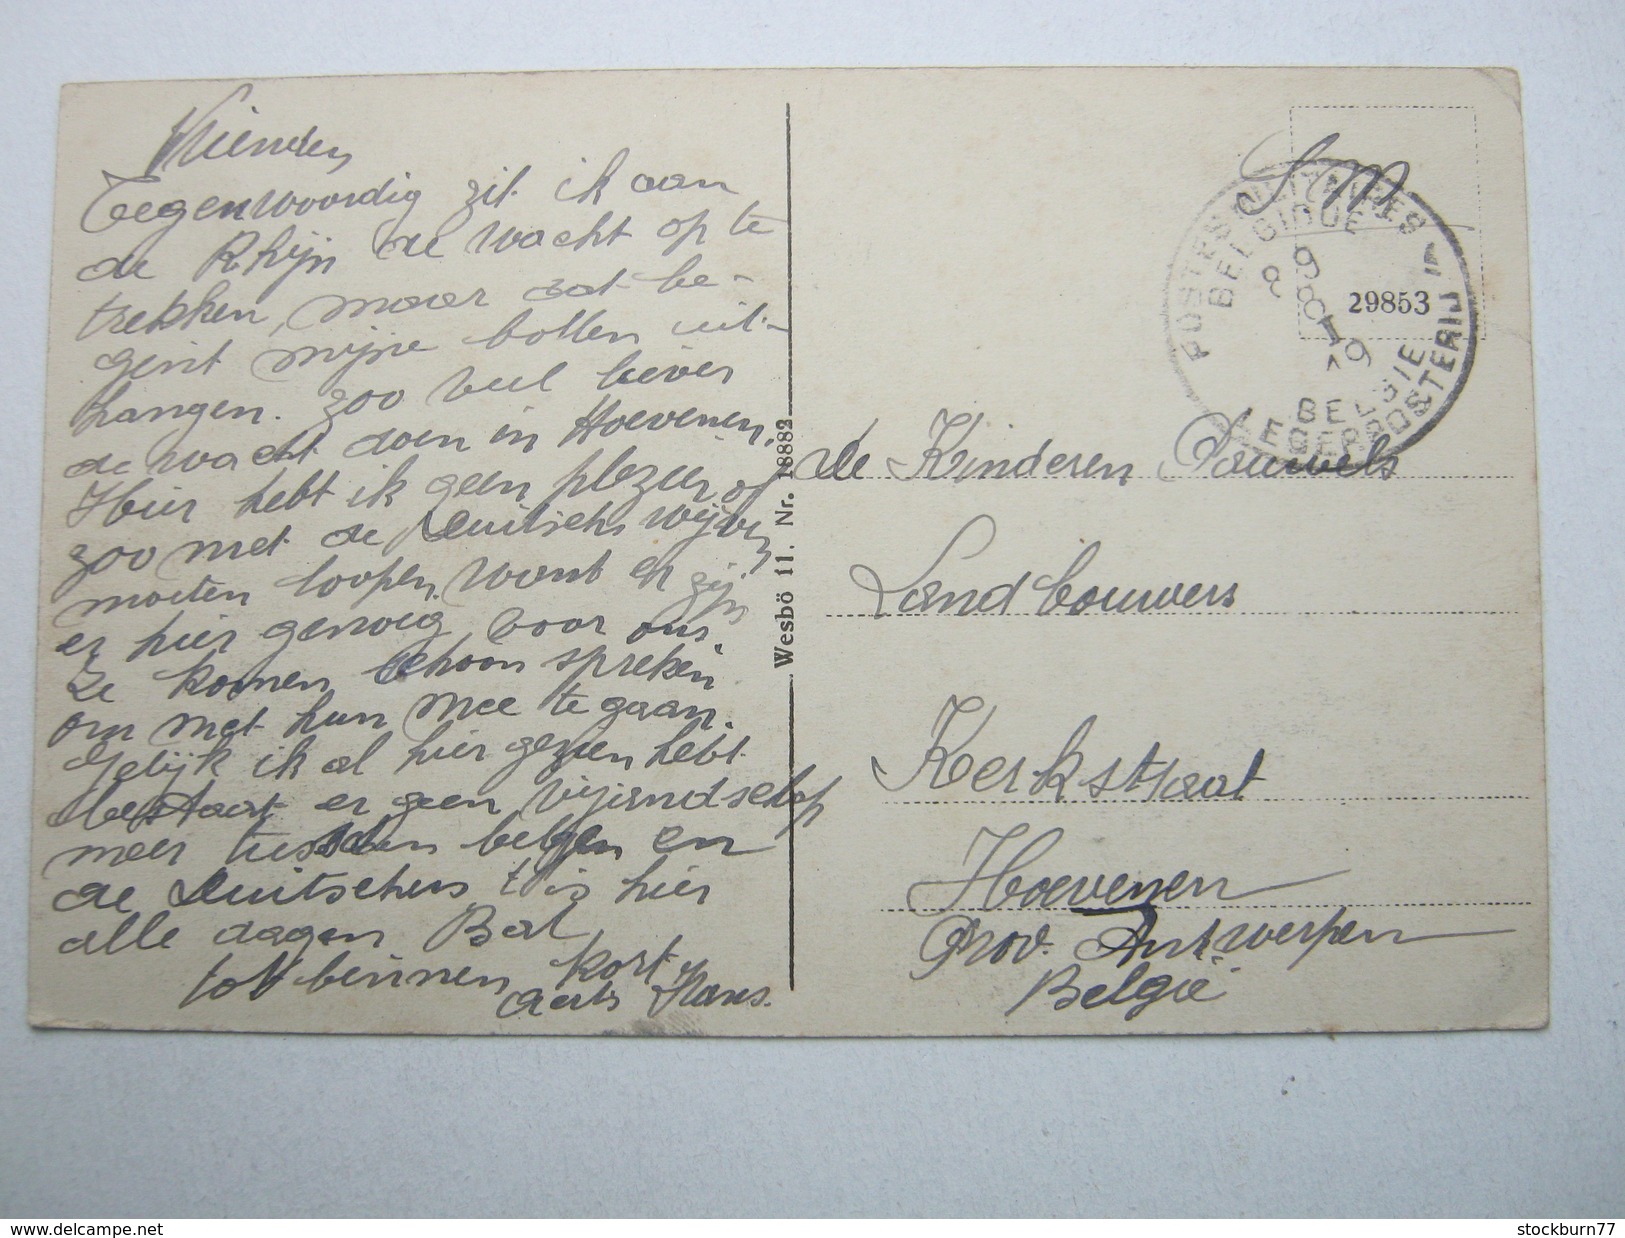 Vrienden
Tegenwoordig zit ik aan
de Rhijn de wacht op te
trekken, maar dat be-
gint mijne bollen uit-
hangen. zoo veel liever
de wacht doen in Hoevenen.
Hier hebt ik geen plezier of
zoo met de Duitschs wijven
moeten loopen, want er zijn
er hier genoeg voor ons.
Ze komen schoon spreken
om met hun mee te gaan.
Gelijk ik al hier gezien hebt
bestaat er geen vijandschap
meer tusschen belgen en
de Duitschers, t is hier
alle dagen Bal
tot binnen kort
Aerts Hans.
Wesbö 11. Nr. 18882
S.M.
POSTES MILITAIRES
BELGIQUE
29853
BELGIE
LEGERPOSTERIJ
de Kinderen Pauwels
Landbouwers
Kerkstraat
Hoevenen
Prov. Antwerpen
België
www.delcampe.net
stockburn77